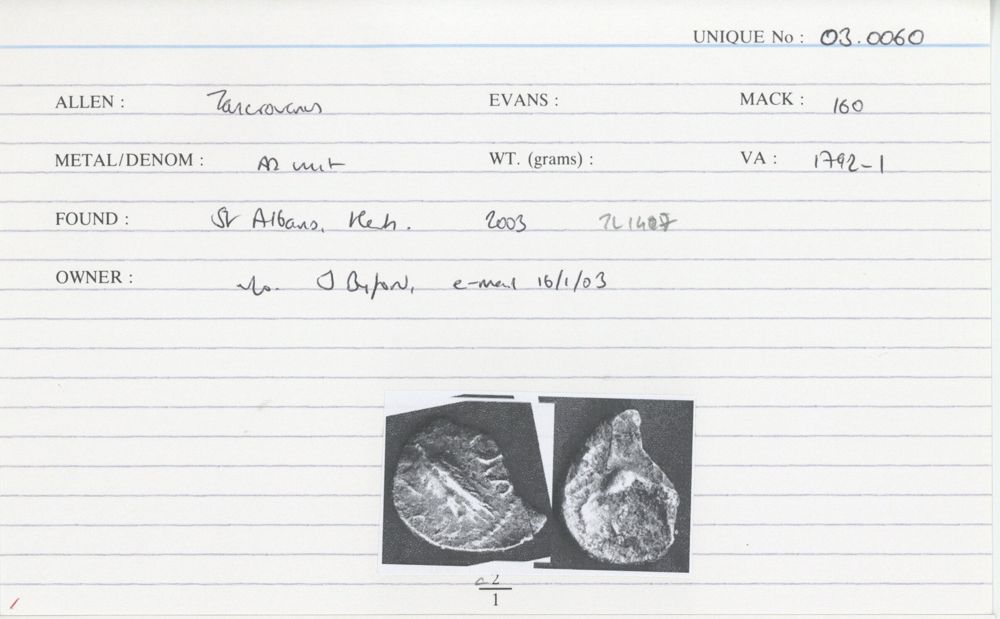 UNIQUE No : 03.0060
ALLEN : Tasciovanus EVANS : MACK : 160
METAL/DENOM : AR unit WT. (grams) : VA : 1792-1
FOUND : St Albans, Herts. 2003 TL1407
OWNER : info. J e-mail 16/1/03
1